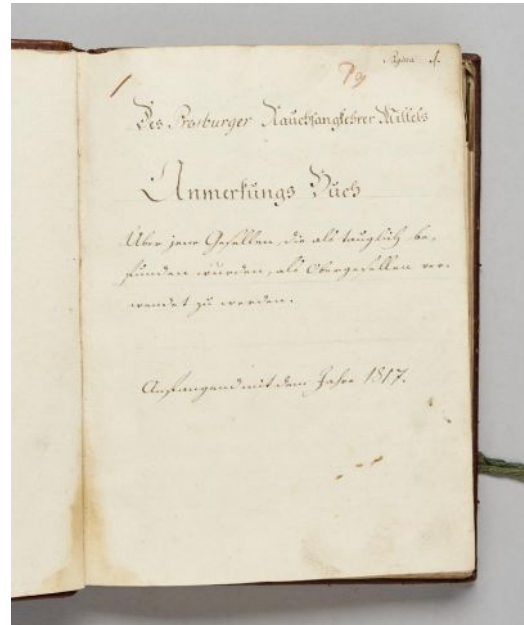 Pagina 1.
1
79
Des Presburger Rauchfangkehrer Mittels
Anmerkungs Buch
Über jene Gesellen, die als tauglich be,
funden wurden, als Obergesellen ver,
wendet zu werden.
Anfangend mit dem Jahre 1817.